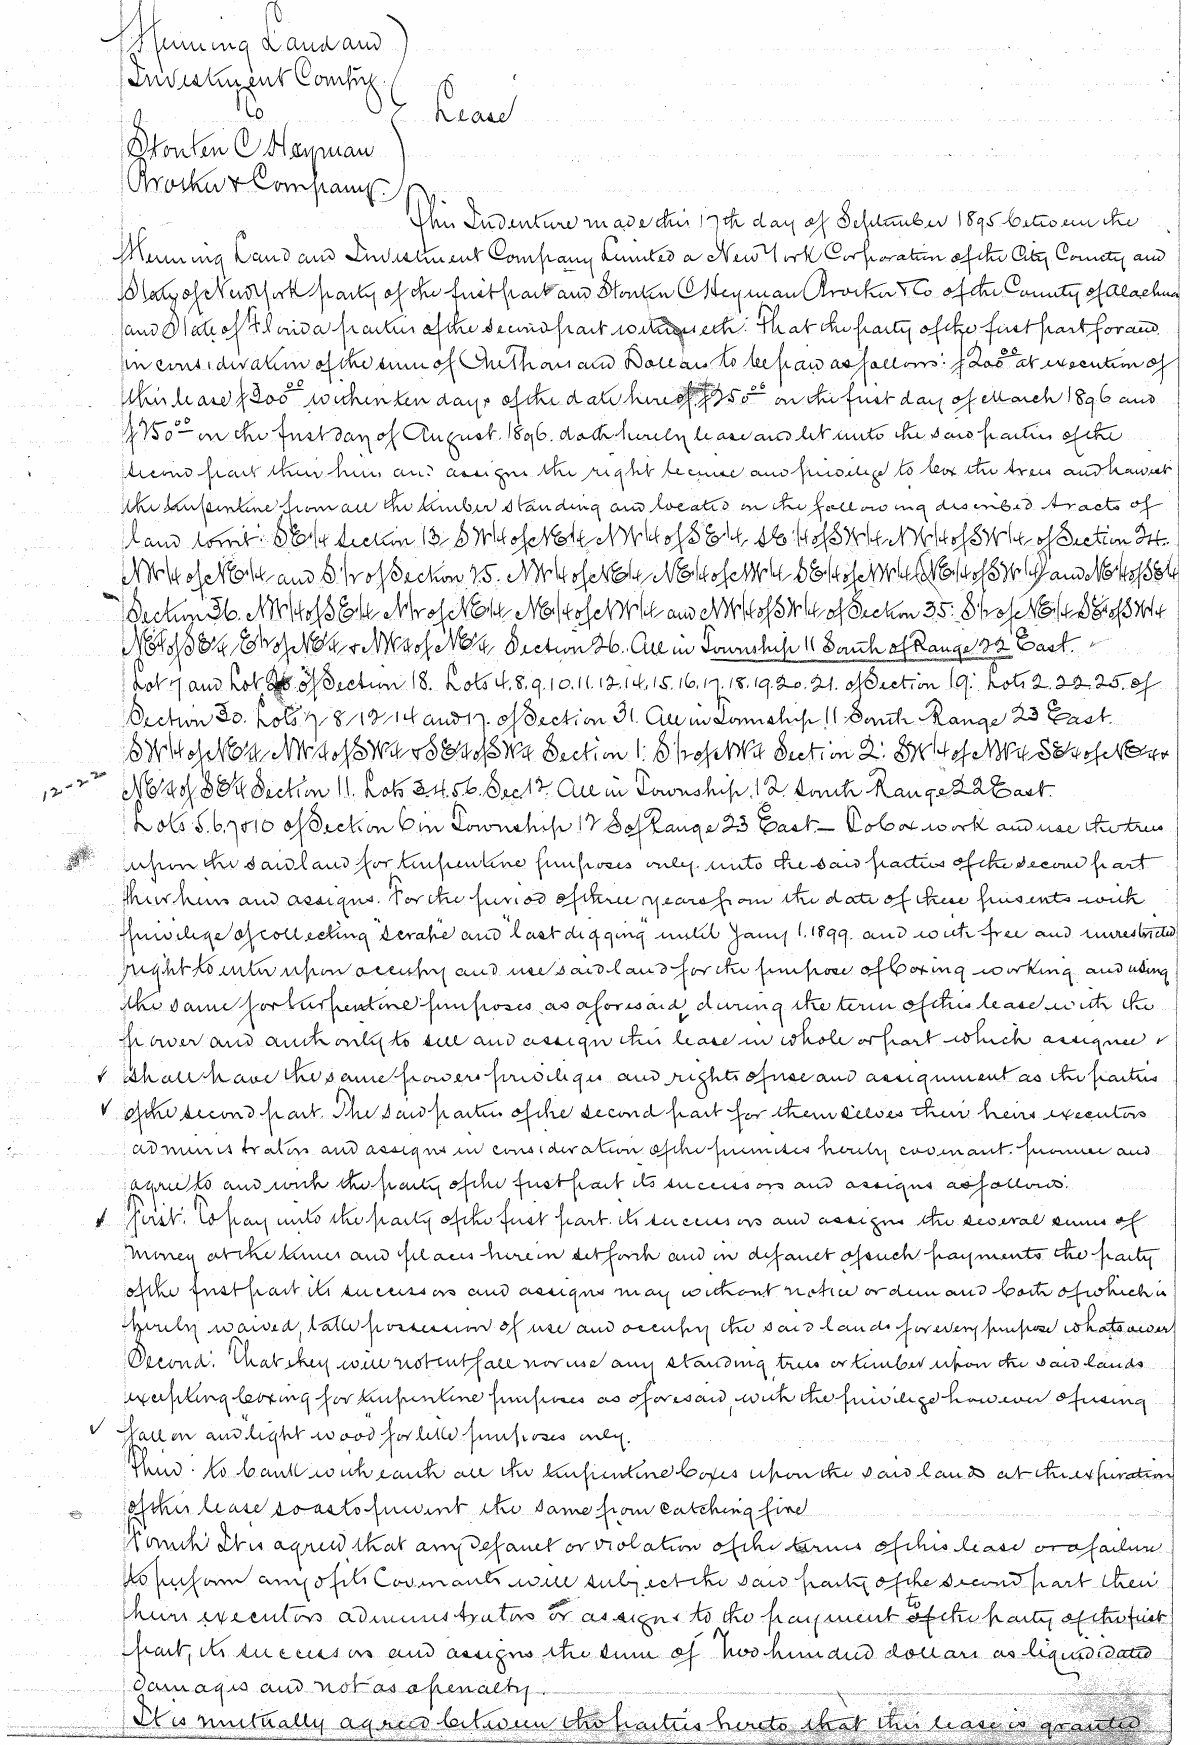 Henning Land and
Investment Compy.
To
Stonten C Heyman
Crocker & Company.
Lease
This Indenture made this 17th day of September 1895 between the
Henning Land and Investment Company Limited a New York Corporation of the City County and
State of New York party of the first part and Stonten C Heyman Crocker & Co of the County of Alachua
and State of Florida parties of the second part witnesseth: That the party of the first part for and
in consideration of the sum of One Thousand Dollars to be paid as follows: $200 00 at execution of
this lease $300 00 within ten days of the date hereof $250 00 on the first day of March 1896 and
$250 00 on the first day of August. 1896. doth hereby lease and let unto the said parties of the
second part their heirs and assigns the right license and privilege to box the trees and harvest
the turpentine from all the timber standing and located on the following described tracts of
land towit: SE1/4 Section 13. SW1/4 of NE1/4, NW1/4 of SE1/4, SE1/4 of SW1/4, NW1/4 of SW1/4, of Section 24.
NW1/4 of NE1/4 and S1/2 of Section 25. NW1/4 of NE1/4, NE1/4 of NW1/4 SE1/4 of NW1/4 (NE1/4 of SW1/4) and NE1/4 of SE1/4
Section 36. NW1/4 of SE1/4 N1/2 of NE1/4, NE1/4 of NW1/4 and NW1/4 of SW1/4 of Section 35: S1/2 of NE1/4 SE4 of SW4
NE4 of SE4, E1/2 of NE4 & NW4 of NE4, Section 26. All in Township 11 South of Range 22 East.
Lot 7 and Lot of Section 18. Lots 4.8.9.10.11.12.14.15.16.17.18.19.20.21. of Section 19: Lots 2.22.25. of
Section 30. Lots 7/8/12/14 and 17. of Section 31. All in Township 11 South Range 23 East.
SW1/4 of NE4, NW4 of SW4 & SE4 of SW4 Section 1: S1/2 of NW4 Section 2: SW1/4 of NW4 SE4 of NE4 &
12-22
NE4 of SE4 Section 11. Lots 3.4.5.6. Sec 12. All in Township 12 south Range 22 East.
Lots 5.6.7&10 of Section 6 in Township 12 S of Range 23 East — To box work and use the trees
upon the said land for turpentine purposes only. unto the said parties of the second part
their heirs and assigns. For the period of three years from the date of these presents with
privilege of collecting "scrape" and "last digging" until Jany 1. 1899. and with free and unrestricted
right to enter upon occupy and use said land for the purpose of boxing working and using
the same for turpentine purposes as aforesaid, during the term of this lease with the
power and authority to sell and assign this lease in whole or part which assignee
shall have the same powers privileges and rights of use and assignment as the parties
of the second part. The said parties of the second part for themselves their heirs executors
administrators and assigns in consideration of the premises hereby covenant. promise and
agree to and with the party of the first part its successors and assigns as follows:
First: To pay unto the party of the first part. its successors and assigns the several sums of
money at the times and places herein set forth and in default of such payments the party
of the first part its successors and assigns may without notice or demand both of which is
hereby waived, take possession of use and occupy the said lands for every purpose whatsoever
Second: That they will not cut fall nor use any standing trees or timber upon the said lands
excepting boxing for turpentine purposes as aforesaid, with the privilege however of using
fallen and "light wood" for like purposes only.
Third: to bank with earth all the turpentine boxes upon the said lands at the expiration
of this lease so as to prevent the same from catching fire
Fourth It is agreed that any default or violation of the terms of this lease or a failure
to perform any of its Covenants will subject the said party of the second part their
heirs executors administrators or assigns to the payment to the party of the first
part, its successors and assigns the sum of Two hundred dollars as liquidated
damages and not as a penalty.
It is mutually agreed between the parties hereto that this lease is granted